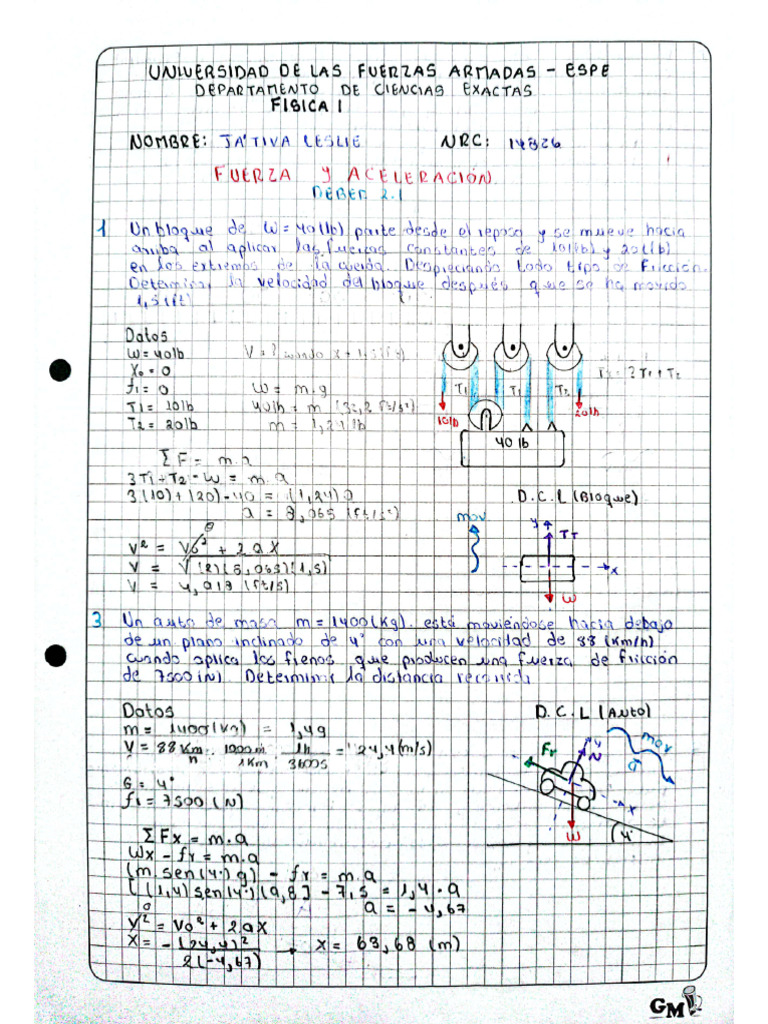 UNIVERSIDAD DE LAS FUERZAS ARMADAS - ESPE
DEPARTAMENTO DE CIENCIAS EXACTAS
FISICA I
NOMBRE: JÁTIVA LESLIE NRC: 14826
FUERZA Y ACELERACIÓN
DEBER 2.1
1 Un bloque de W = 40(lb) parte desde el reposo y se mueve hacia
arriba al aplicar las fuerzas constantes de 10(lb) y 20(lb)
en los extremos de la cuerda. Despreciando todo tipo de fricción.
Determinar la velocidad del bloque después que se ha movido
1,5(ft)
Datos
W = 40lb V = ? cuando x = 1,5(ft)
X₀ = 0
f₁ = 0 W = m.g
T₁ = 10lb 40lb = m (32,2 ft/s²)
T₂ = 20lb m = 1,24lb
T₁ T₁ T₂
10lb 20lb
40 lb
ΣF = m.a
3T₁ + T₂ - W = m.a
3(10) + (20) - 40 = (1,24)a
D.C.L (Bloque)
mov y T_T x W
V² = V₀² + 2aX
3 Un auto de masa m = 1400(Kg). está moviéndose hacia debajo
de un plano inclinado de 4° con una velocidad de 88 (Km/h)
cuando aplica los frenos que producen una fuerza de fricción
de 7500(N). Determinar la distancia recorrida
Datos D.C.L (Auto)
m = 1400(Kg) = 1,4g
V = 88 Km/h · 1000m/1Km · 1h/3600s = 24,4(m/s)
θ = 4°
f₁ = 7500(N)
Fr y N mov a x W 4°
ΣFx = m.a
Wx - fr = m.a
(m.sen(4°)g) - fr = m.a
[(1,4)sen(4°)(9,8)] - 7,5 = 1,4.a
a = -4,67
0
V² = V₀² + 2aX
X = -(24,4)²/2(-4,67) X = 63,68 (m)
GM